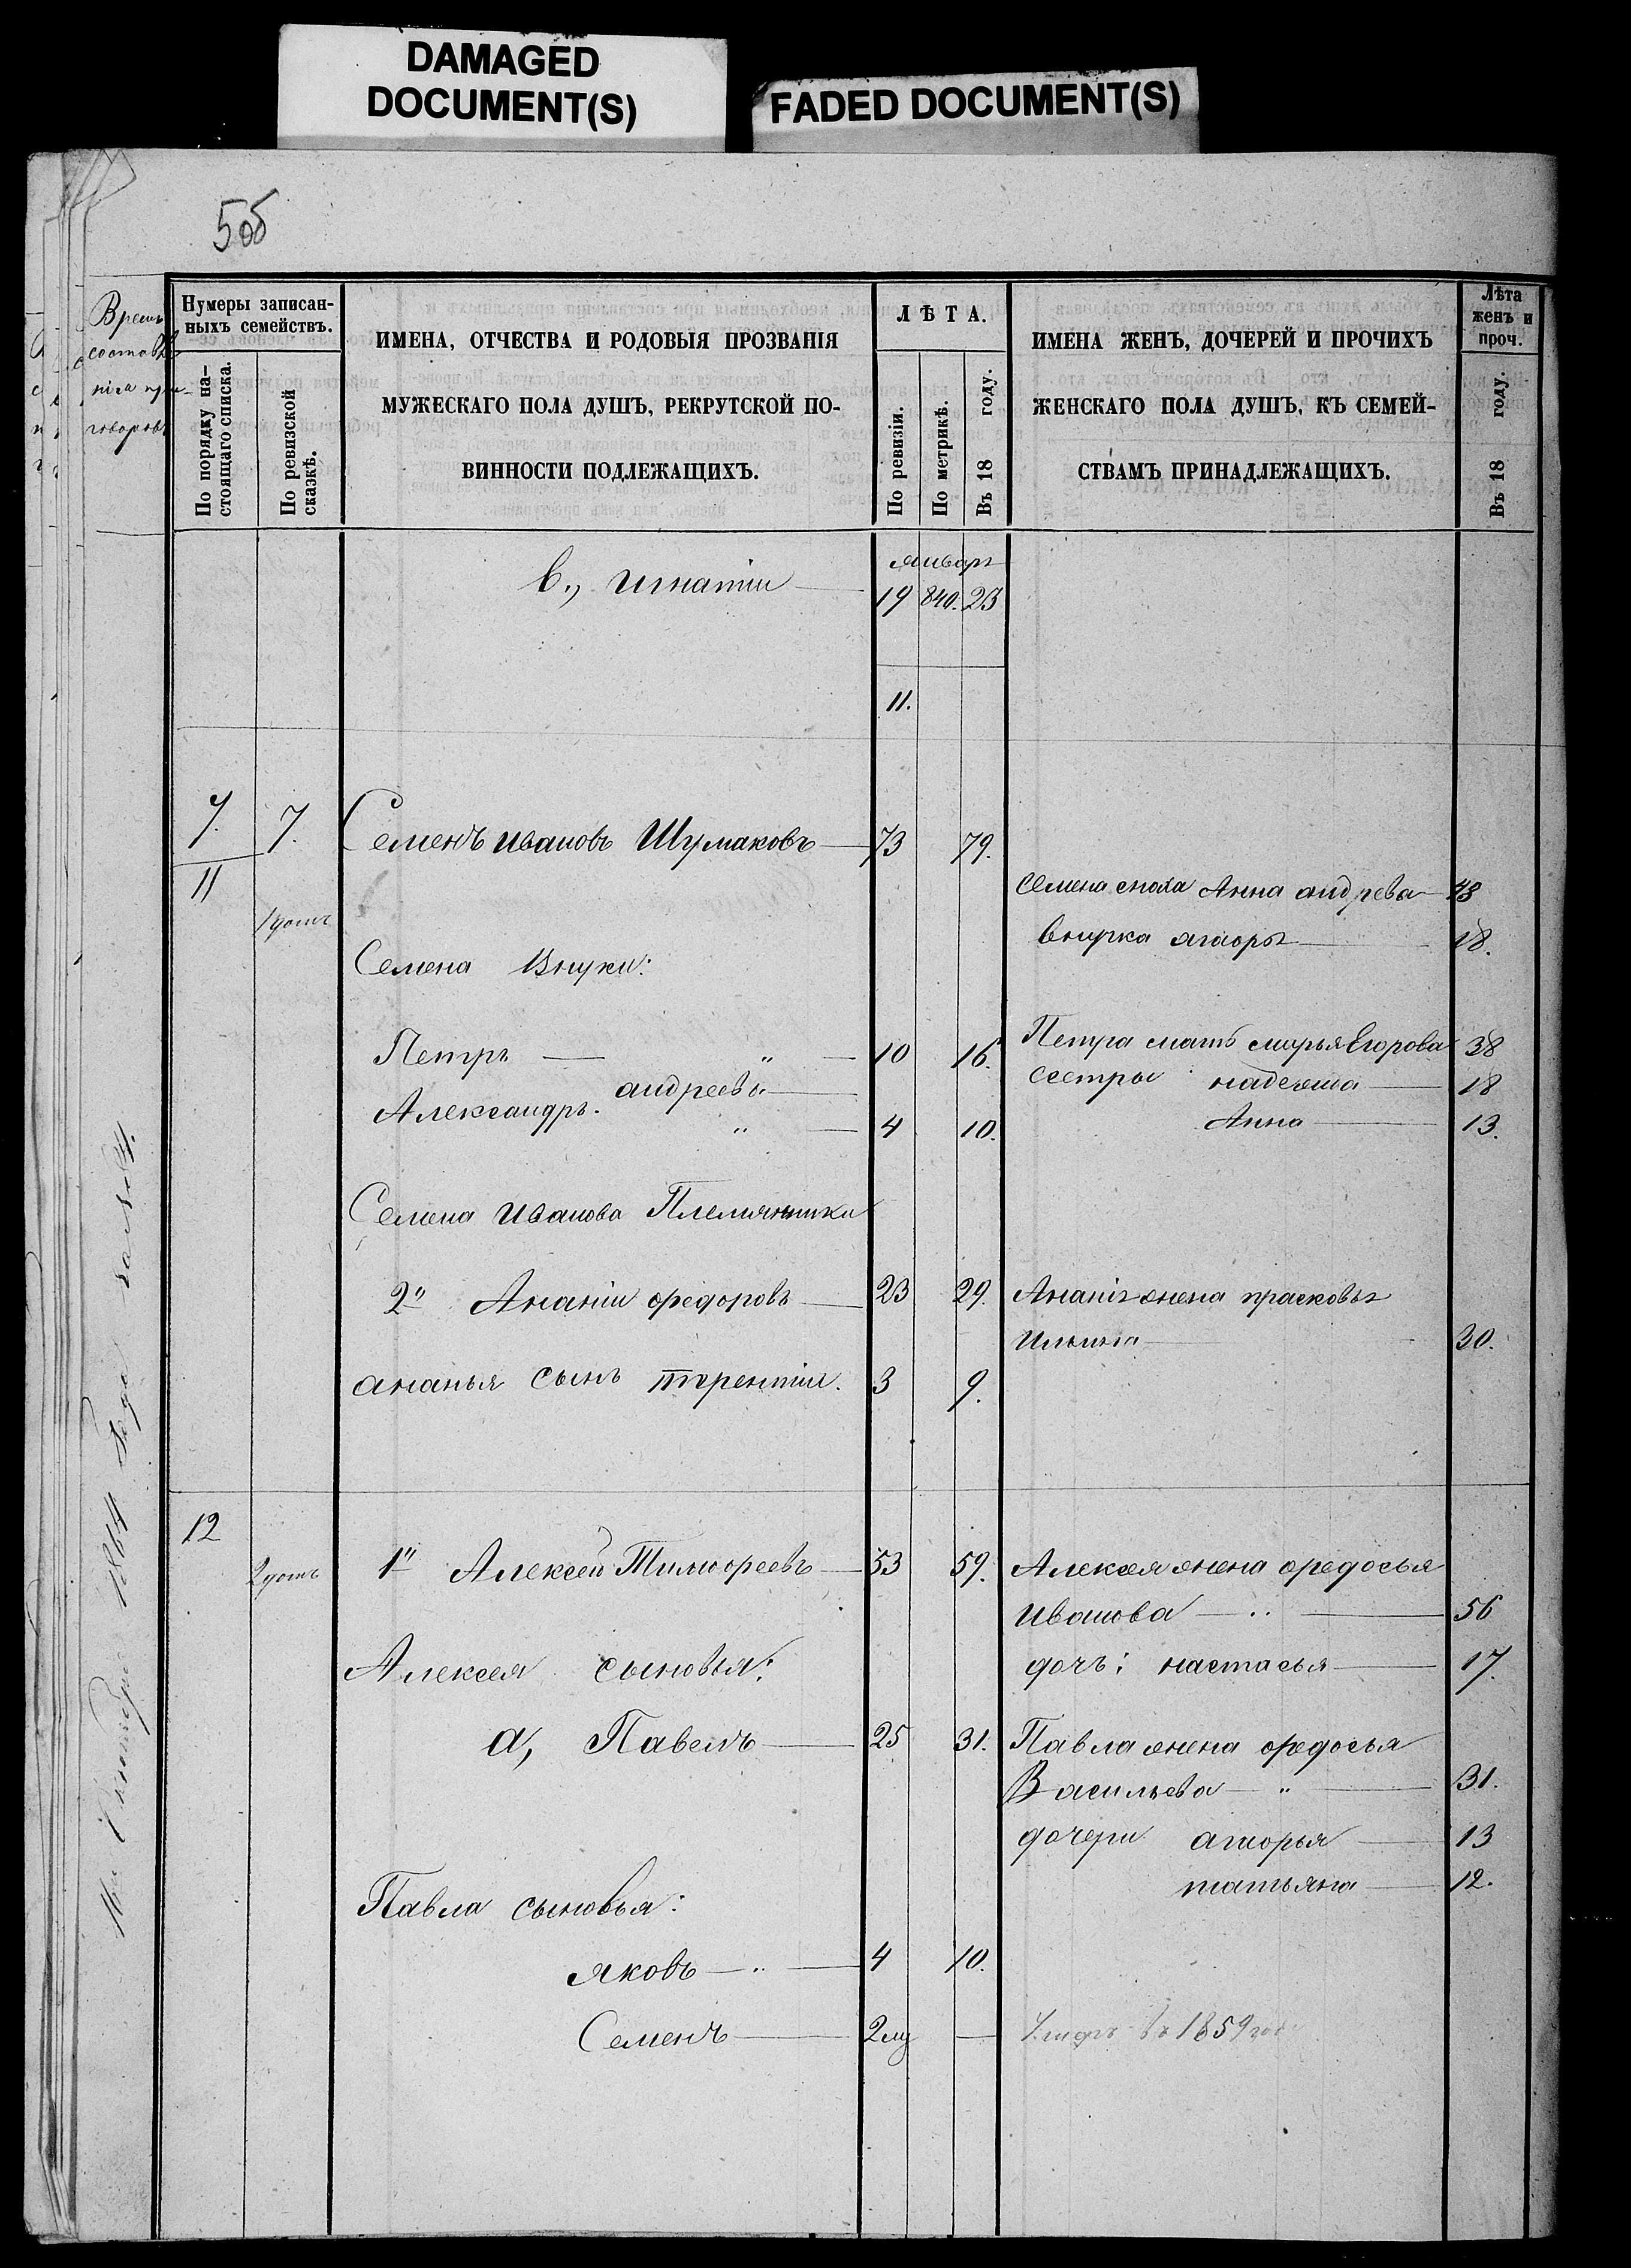 DAMAGED
DOCUMENT(S)
FADED DOCUMENT(S)
5об
Нумеры записан-
ныхъ семействъ.
По порядку на-
стоящаго списка.
По ревизской
сказкѣ.
ИМЕНА, ОТЧЕСТВА И РОДОВЫЯ ПРОЗВАНІЯ
МУЖЕСКАГО ПОЛА ДУШЪ, РЕКРУТСКОЙ ПО-
ВИННОСТИ ПОДЛЕЖАЩИХЪ.
ЛѢТА.
По ревизіи.
По метрикѣ.
Въ 18 году.
ИМЕНА ЖЕНЪ, ДОЧЕРЕЙ И ПРОЧИХЪ
ЖЕНСКАГО ПОЛА ДУШЪ, КЪ СЕМЕЙ-
СТВАМЪ ПРИНАДЛЕЖАЩИХЪ.
Лѣта
женъ и
проч.
Въ 18 году.
январ
в., игнатіи — 19 840. 23
11.
7. 7. Семенъ ивановъ Шумаковъ — 73 79.
11
семена сноха Анна андрева — 43
1 домъ
внучка — 18.
Семена Внуки:
Петръ — " — 10 16. Петра мать марья Егорова 38
андреевы —
сестры надежда — 18
Александръ. " — 4 10. Анна — 13.
Семена иванова Племянники
2" Ананіи федоровъ — 23 29. Ананія жена прасковья
Ильина — 30.
ананья сынъ терентіи. 3 9.
12
2 домъ 1" Алексей Тимофеевъ — 53 59. Алексея жена федосья
Иванова — " — 56
Алексея сыновья: дочь: настасья — 17.
а, Павелъ — 25 31. Павла жена федосья
Васильева — " — 31.
дочери — 13
татьяна — 12.
Павла сыновья:
яковъ — " — 4 10.
Семенъ — 2 мц — Умеръ въ 1859 году
1864 года